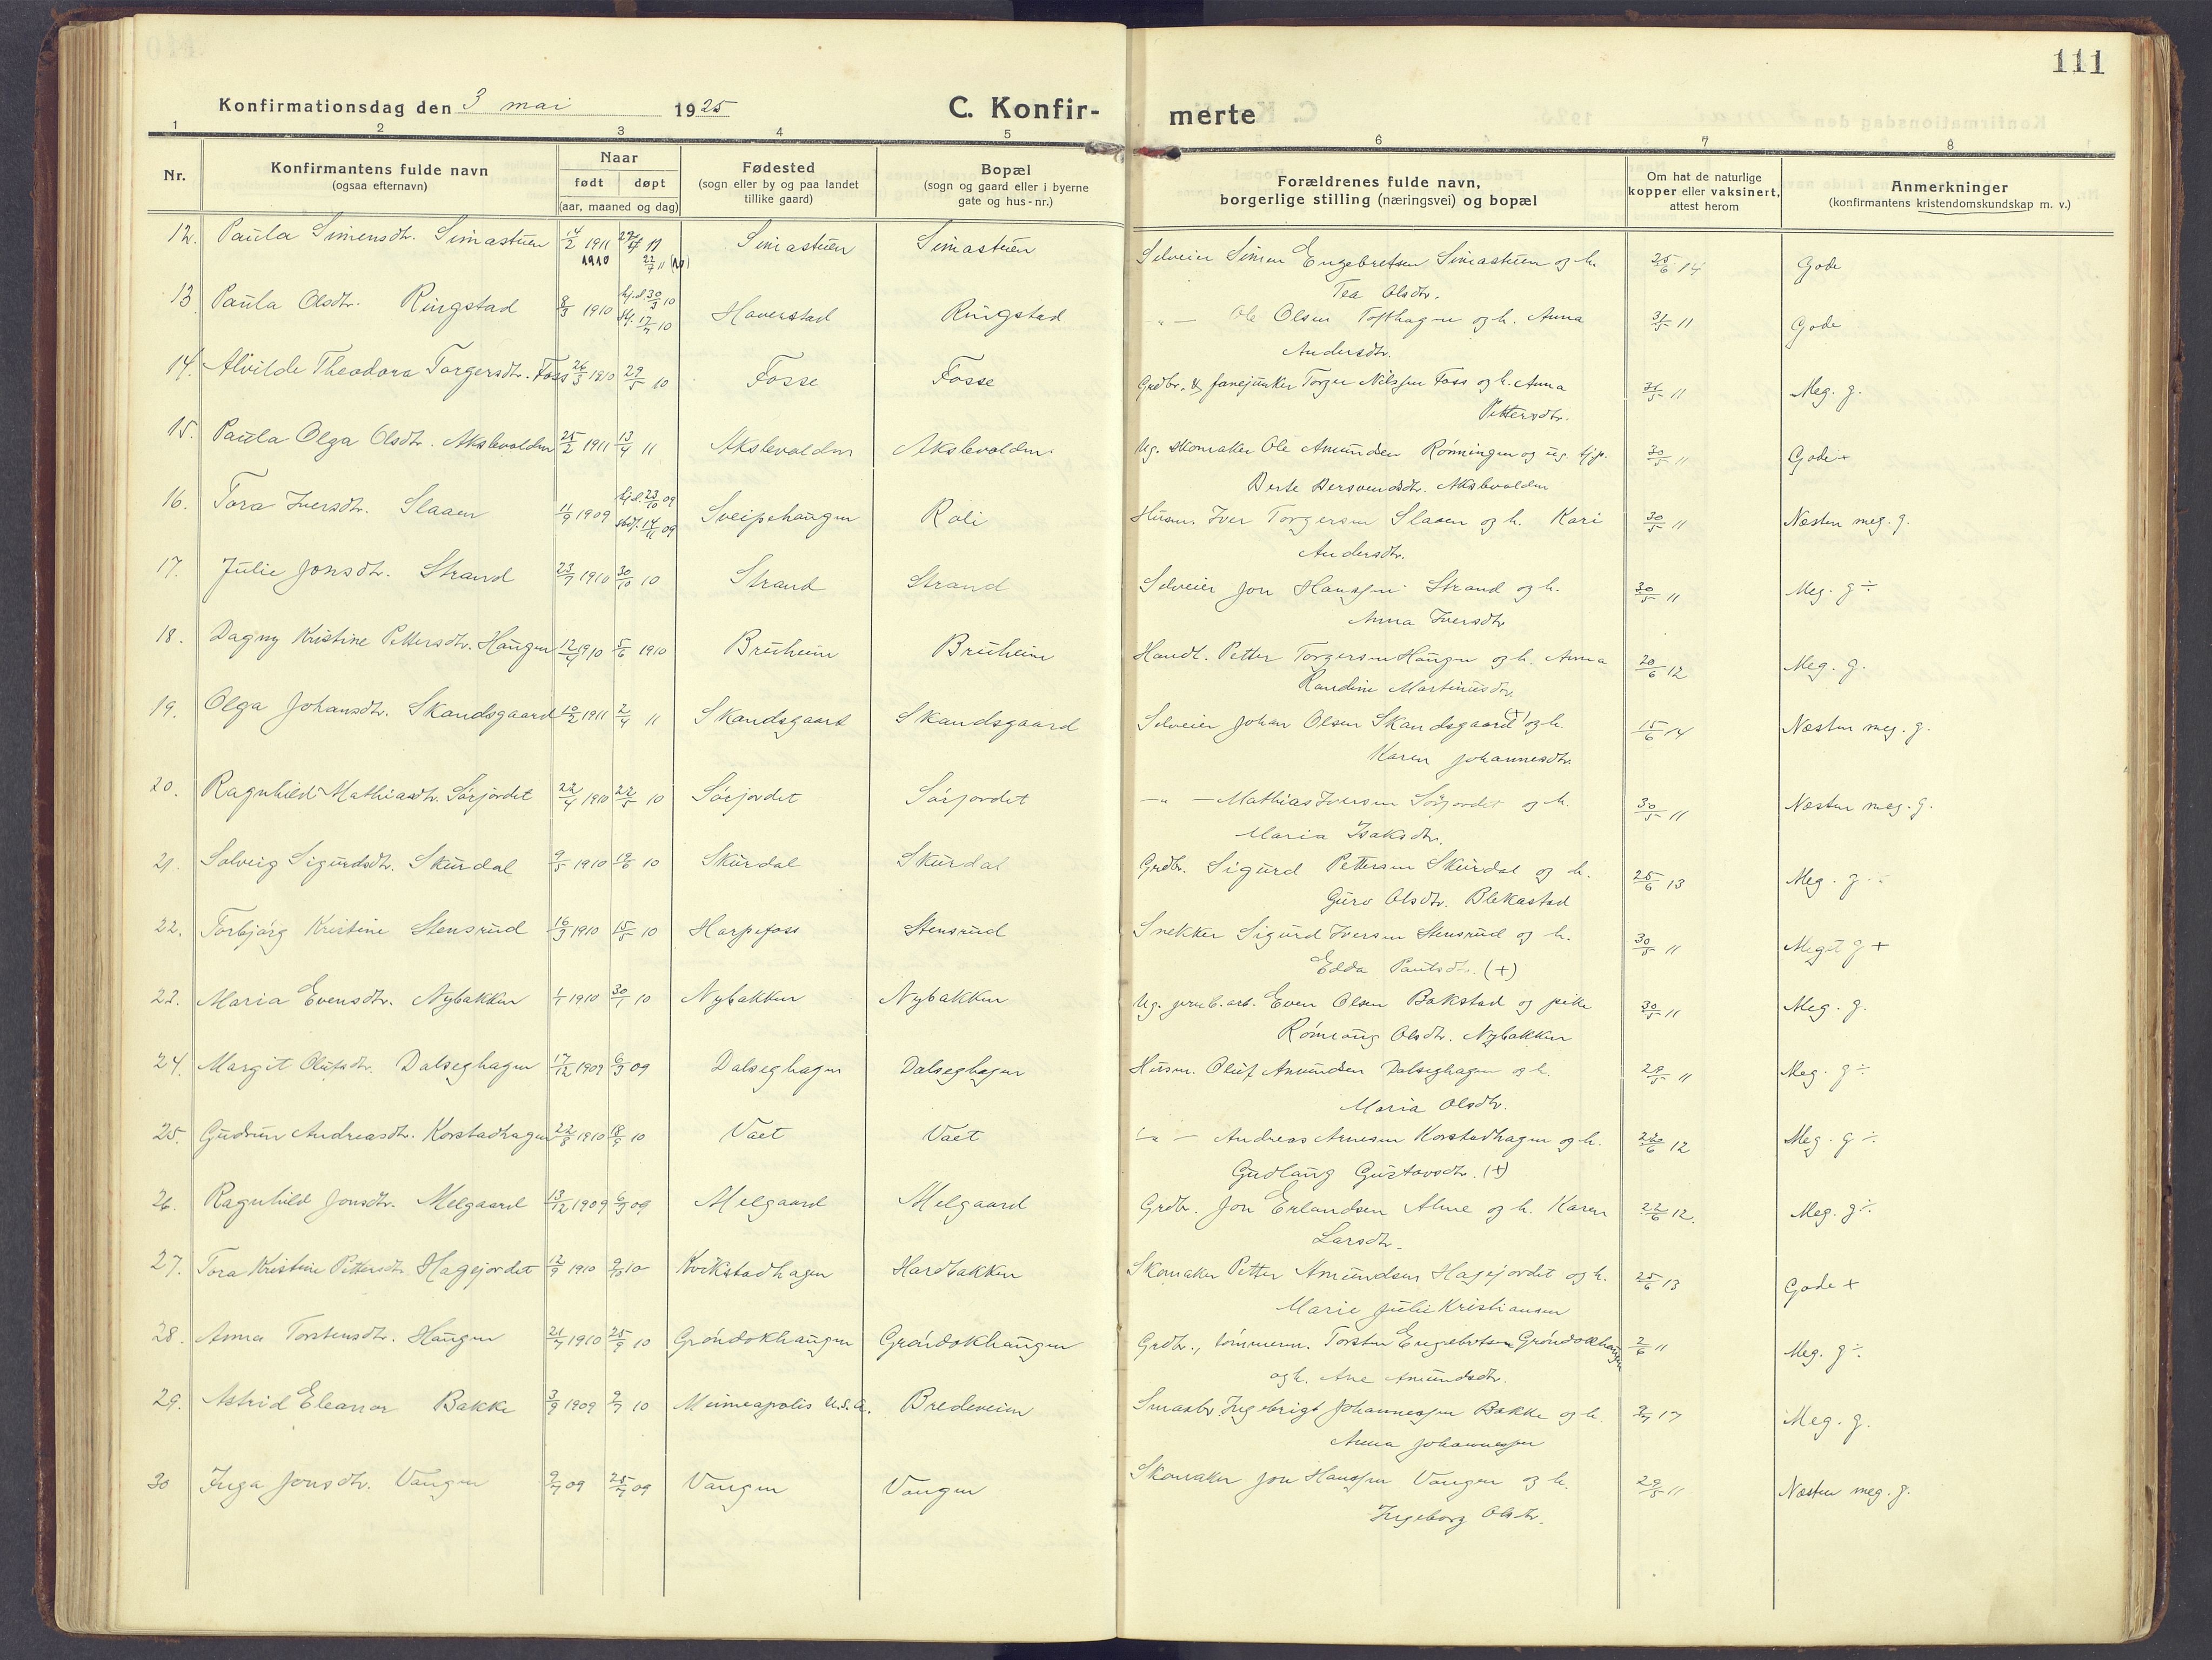 111
Konfirmationsdag den 3 mai 1925
C. Konfir-
merte
1 2 3 4 5 6 7 8
Nr.
Konfirmantens fulde navn
(ogsaa efternavn)
Naar
født døpt
(aar, maaned og dag)
Fødested
(sogn eller by og paa landet
tillike gaard)
Bopæl
(sogn og gaard eller i byerne
gate og hus-nr.)
Forældrenes fulde navn,
borgerlige stilling (næringsvei) og bopæl
Om hat de naturlige
kopper eller vaksinert,
attest herom
Anmerkninger
(konfirmantens kristendomskundskap m. v.)
12. Paula Simensdtr. Simastuen 14/2 1911 1910 Simastuen Simastuen Selveier Simen Engebretsen Simastuen og h. 25/6 14 Gode
Tea Olsdtr.
13 Paula Olsdtr. Ringstad 8/3 1910 hj.d. 30/3 10 17/7 10 Haverstad Ringstad -"- Ole Olsen Tofthagen og h. Anna 31/5 11 Gode
Andersdtr.
14. Alvilde Theodora Torgersdtr. Foss 26/3 1910 29/5 10 Fosse Fosse Grdbr. & fanejunker Torger Nilssen Foss og h. Anna 31/5 11 Meg. g.
Pettersdtr.
15. Paula Olga Olsdtr. Akslevolden 25/2 1911 13/4 11 Akslevolden Akslevolden Ug. skomaker Ole Amundsen Rønningen og ug. tjp. 30/5 11 Gode+
Berte Bersvendsdtr. Akslevolden
16. Tora Iversdtr. Slaaen 11/9 1909 hj.d. 23/10 09 14/11 09 Sveipehaugen Roli Husm. Iver Torgersen Slaaen og h. Kari 30/5 11 Næsten meg. g.
Andersdtr.
17. Julie Jonsdtr. Strand 23/7 1910 30/10 10 Strand Strand Selveier Jon Hanssen Strand og h. 30/5 11 Meg. g ÷
Anna Iversdtr
18. Dagny Kristine Pettersdtr. Haugen 12/4 1910 5/6 1910 Bruheim Bruheim Handl. Petter Torgersen Haugen og h. Anna 20/6 12 Meg. g.
Randine Martinusdtr.
19. Olga Johansdtr. Skandsgaard 10/2 1911 2/4 11 Skandsgaard Skandsgaard Selveier Johan Olsen Skandsgaard (+) og h. 15/6 14 Næsten meg. g.
Karen Johannesdtr.
20. Ragnhild Mathiasdtr. Sørjordet 22/4 1910 22/5 10 Sørjordet Sørjordet -"- Mathias Iversen Sørjordet og h. 30/5 11 Næsten meg. g.
Maria Isaksdtr.
21. Solveig Sigurdsdtr. Skurdal 9/5 1910 19/6 10 Skurdal Skurdal Grdbr. Sigurd Pettersen Skurdal og h. 25/6 13 Meg. g ÷
Guro Olsdtr. Blekastad
22. Torbjørg Kristine Stensrud 16/3 1910 15/5 10 Harpefoss Stensrud Snekker Sigurd Iversen Stensrud og h. 30/5 11 Meget g +
Edda Paulsdtr. (+)
23. Maria Evensdtr. Nybakken 1/1 1910 30/1 10 Nybakken Nybakken Ug. jernb.arb. Even Olsen Bakstad og pike 30/5 11 Meg. g.
Rønnaug Olsdtr. Nybakken
24. Margit Olufsdtr. Dalseghagen 17/12 1909 6/3 09 Dalseghagen Dalseghagen Husm. Oluf Amundsen Dalseghagen og h. 29/5 11 Meg. g ÷
Maria Olsdtr.
25. Gudrun Andreasdtr. Korstadhagen 22/8 1910 18/9 10 Vaet Vaet -"- Andreas Arnesen Korstadhagen og h. 6 12 Meg. g ÷.
Gudlaug Gustavsdtr. (+)
26. Ragnhild Jonsdtr. Melgaard 13/12 1909 6/3 09 Melgaard Melgaard Grdbr. Jon Erlandsen Alme og h. Karen 22/6 12. Meg. g ÷.
Larsdtr.
27. Tora Kristine Pettersdtr. Hagejordet 12/9 1910 9/10 10 Kvikstadhagen Hardbakken Skomaker Petter Amundsen Hagejordet og h. 25/6 13 Gode +
Marie Julie Kristiansen
28. Anna Torstensdtr. Haugen 21/7 1910 25/9 10 Grøndokhaugen Grøndokhaugen Grdbr., tømmerm. Torsten Engebretsen Grøndokhaugen 2/6 11 Meg. g ÷.
og h. Ane Amundsdtr.
29. Astrid Eleanor Bakke 3/9 1909 9/7 10 Minneapolis U.S.A. Bredeveien Smaabr. Ingebrigt Johannessen Bakke og h. 9/7 17 Meg. g.
Anna Johannessen
30 Inga Jonsdtr. Vangen 9/7 09 25/7 09 Vangen Vangen Skomaker Jon Hanssen Vangen og h. 29/5 11 Næsten meg. g.
Ingeborg Olsdtr.